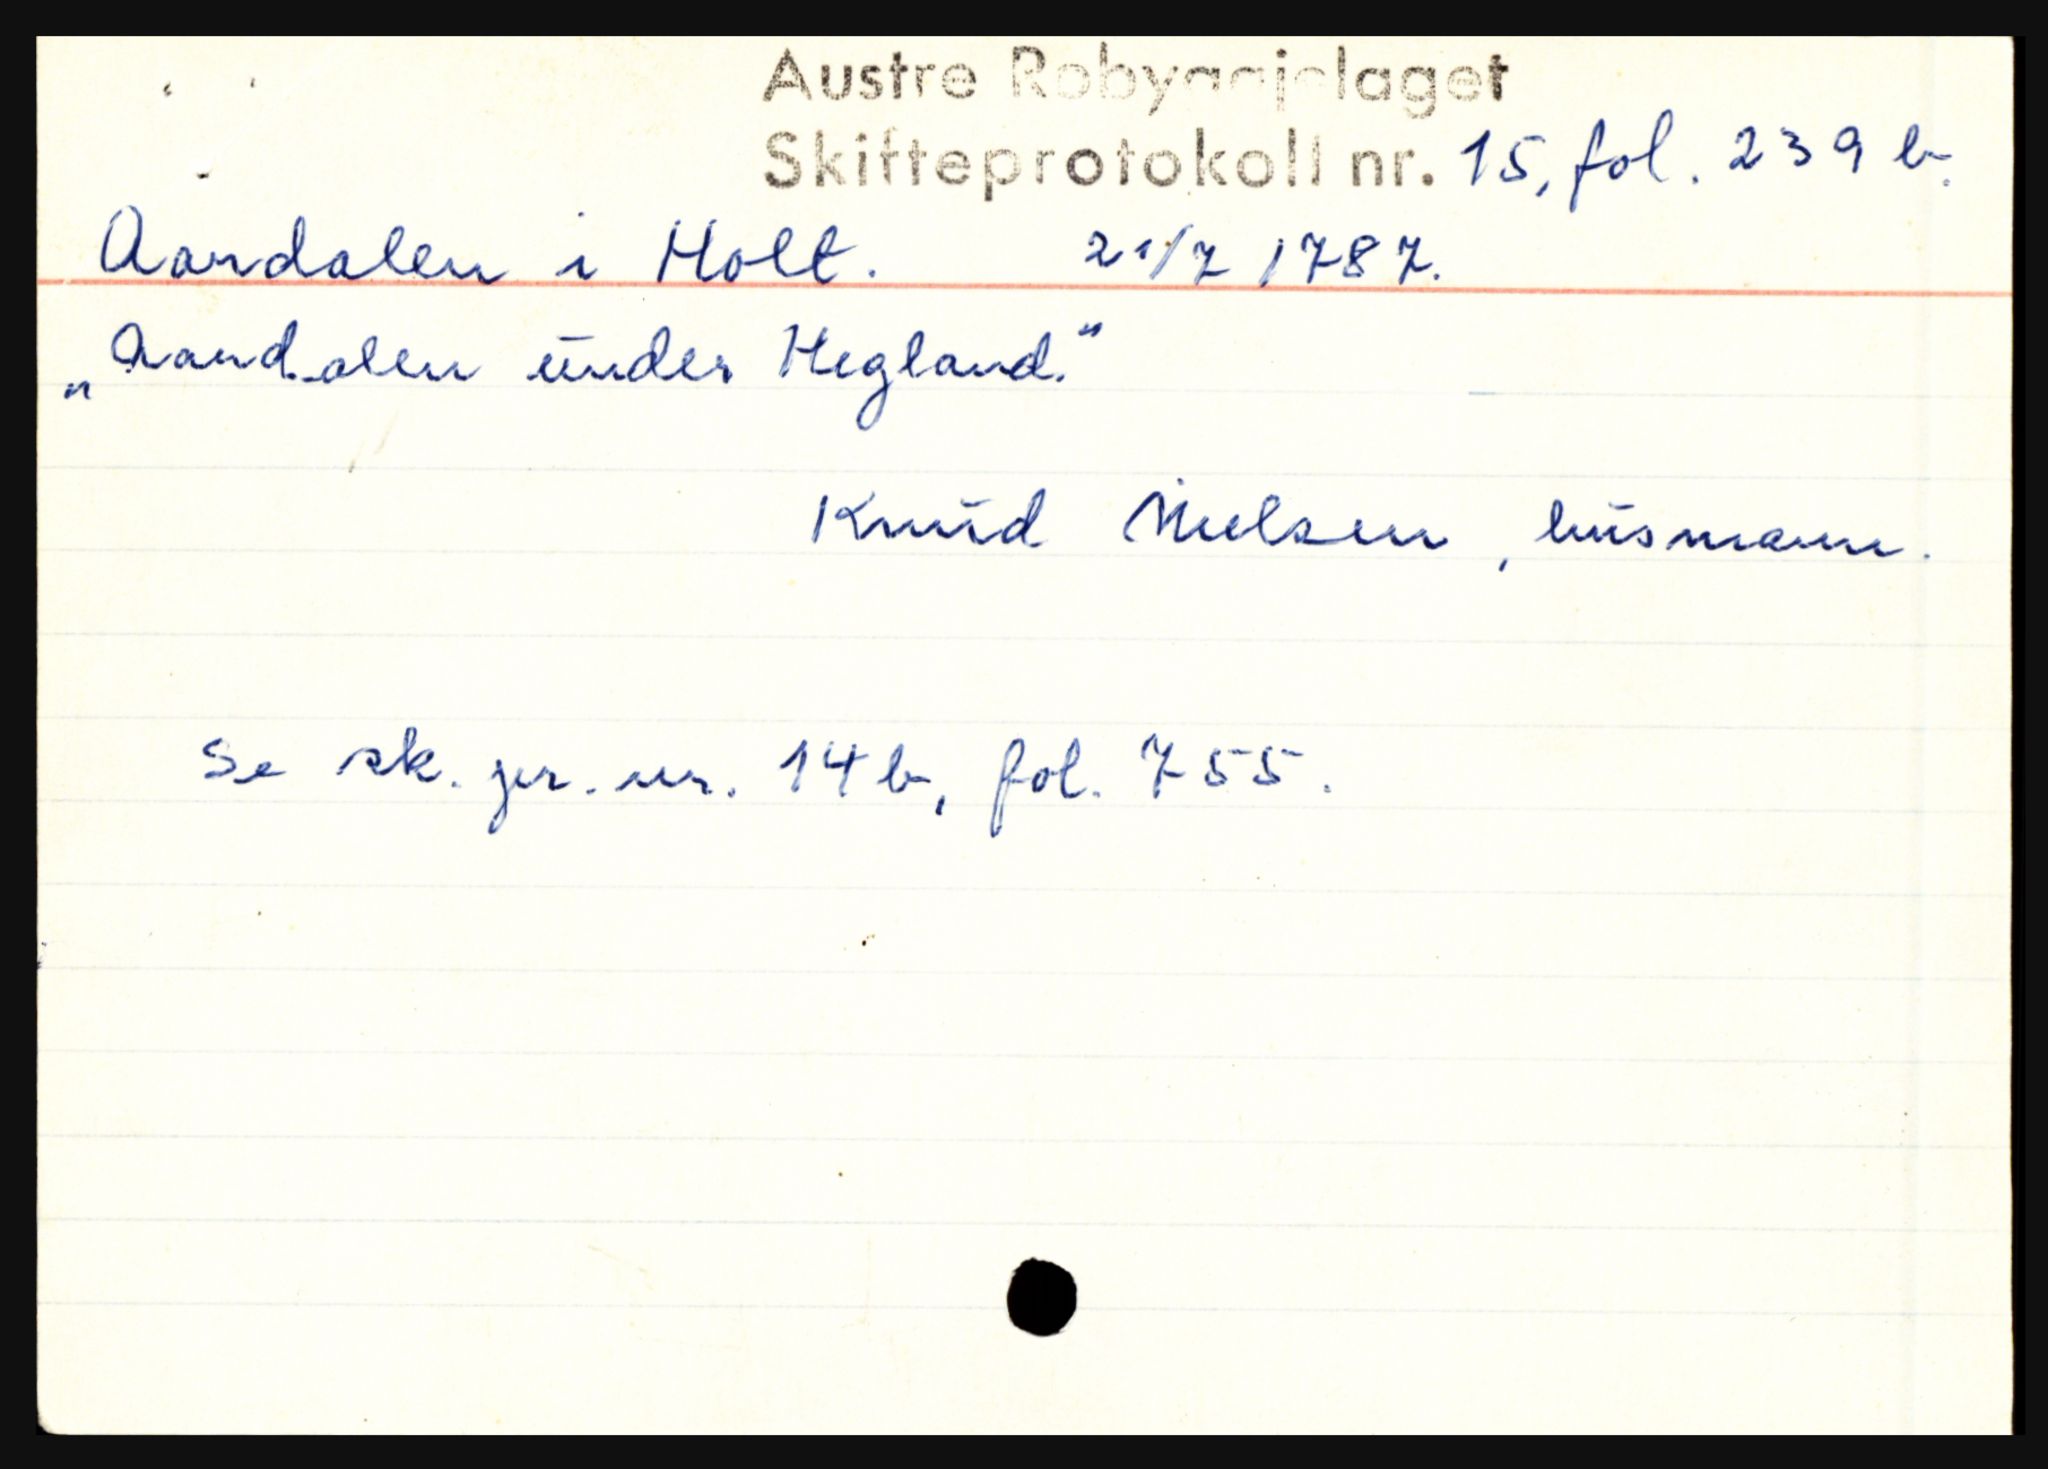 Austre Robyggjelaget
Skifteprotokoll nr. 15, fol. 239 b.
Aandalen i Holt. 21/7 1787.
„Aandalen under Hegland."
Knud Nielsen, husmann.
Se sk. pr. nr. 14 b, fol. 755.